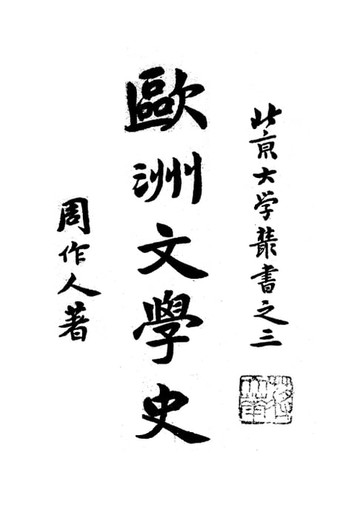 北亰大学叢書之三
歐洲文學史
周作人著